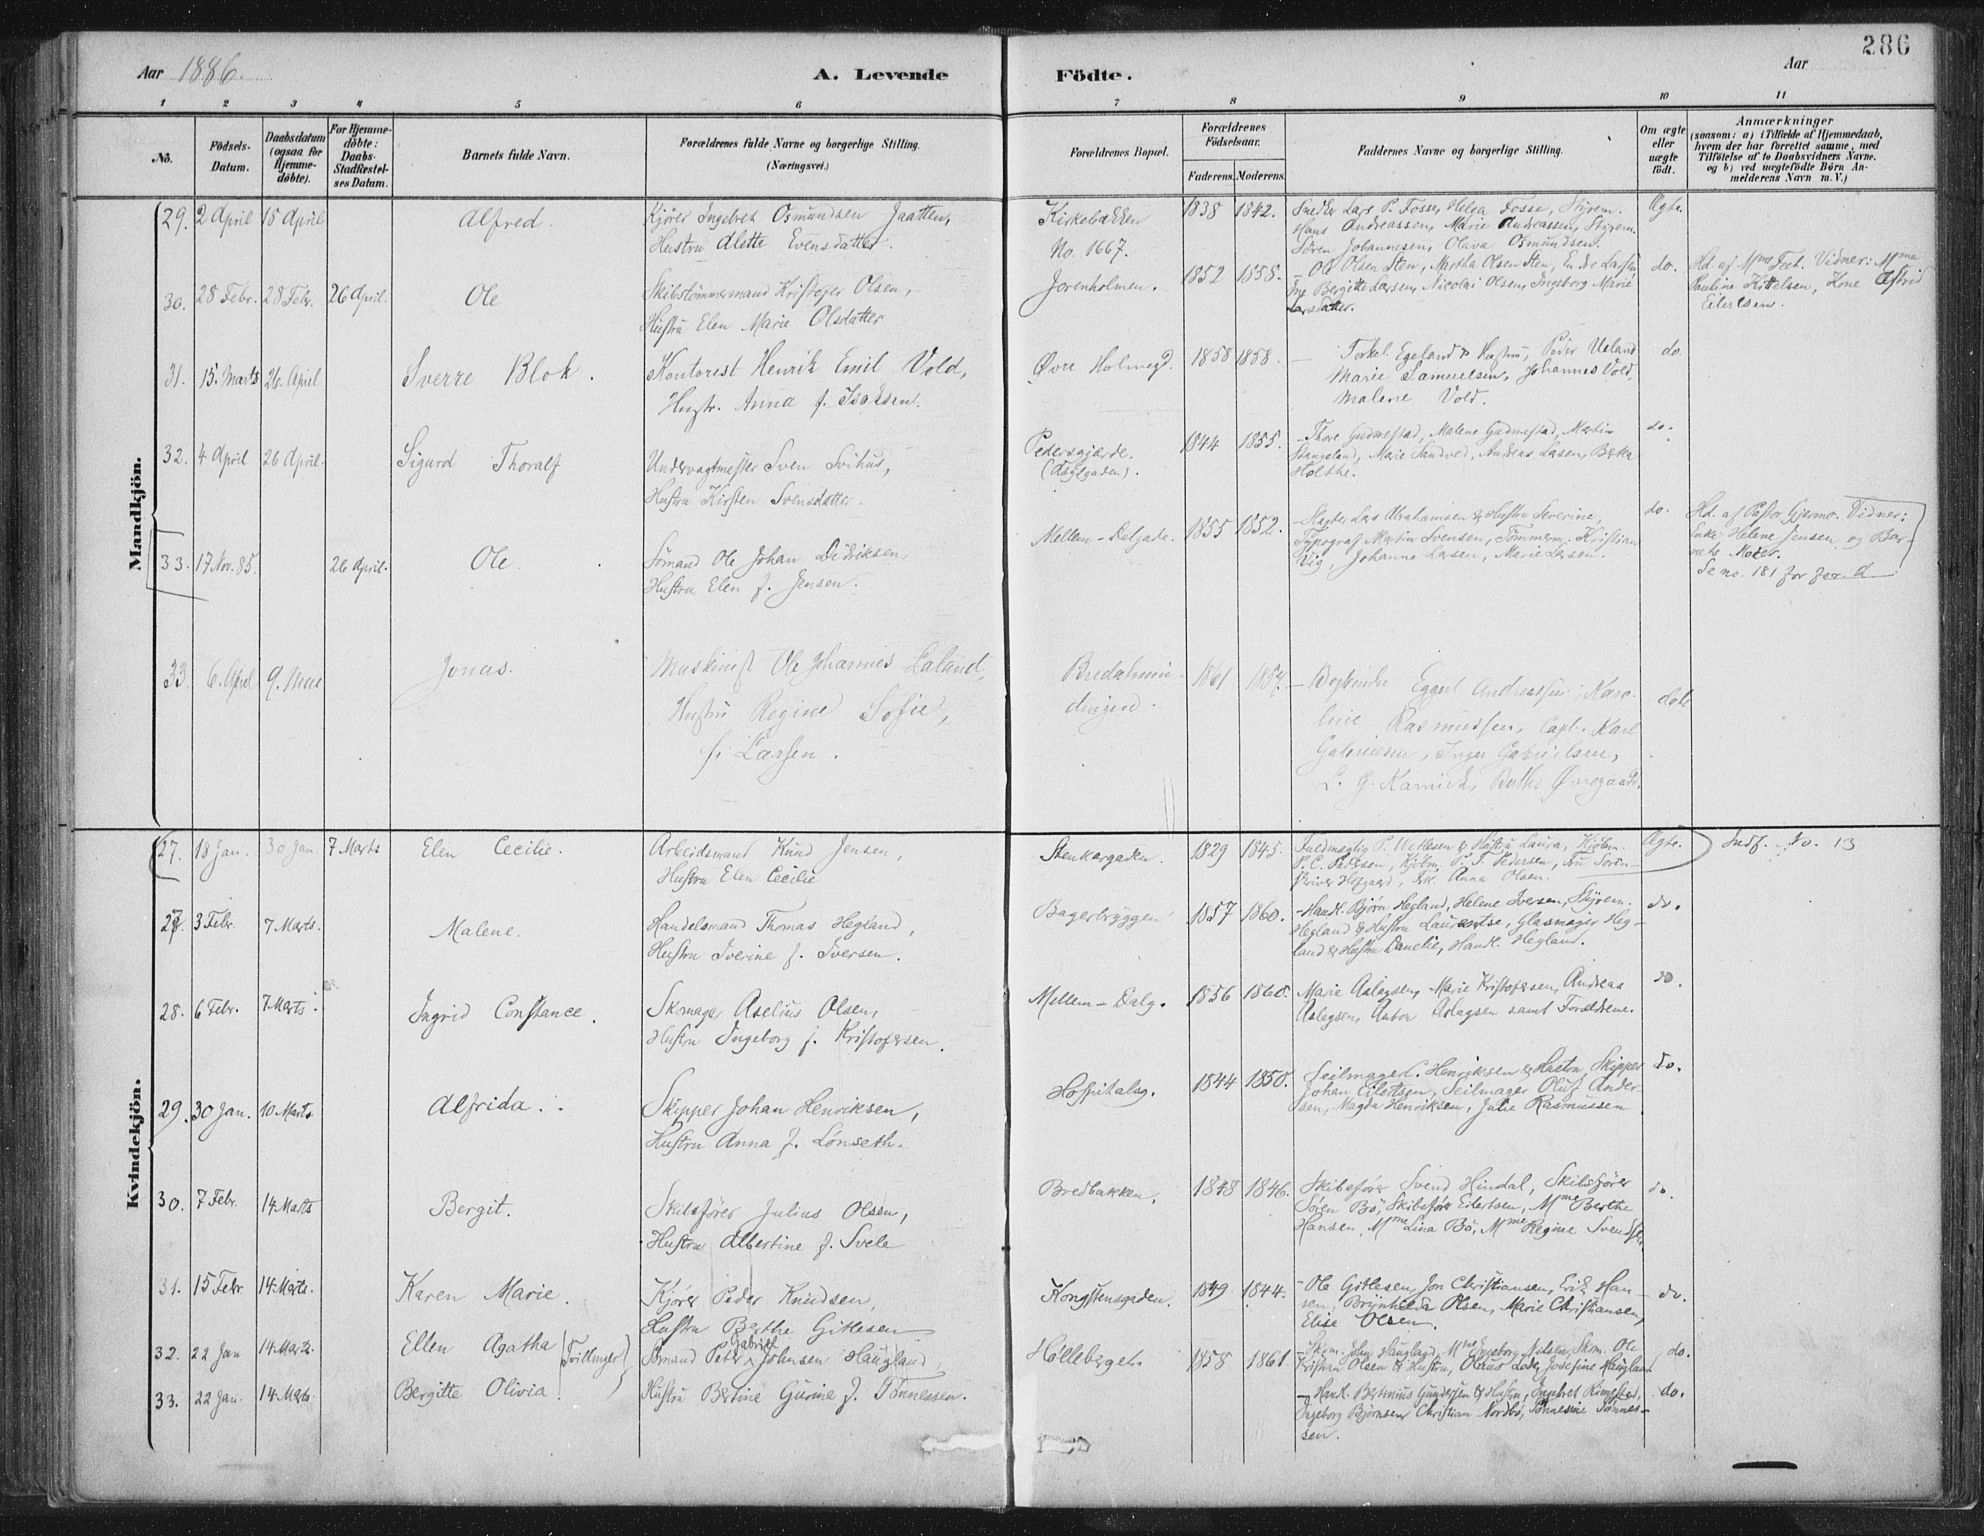 286
Aar 1886.
A. Levende Födte.
Aar
1 2 3 4 5 6 7 8 9 10 11
No.
Födsels-Datum.
Daabsdatum (ogsaa for Hjemme-döbte).
For Hjemme-döbte: Daabs-Stadfæstel-ses Datum.
Barnets fulde Navn.
Forældrenes fulde Navne og borgerlige Stilling. (Næringsvei.)
Forældrenes Bopæl.
Forældrenes Födselsaar.
Faderens. Moderens.
Faddernes Navne og borgerlige Stilling.
Om ægte eller uægte födt.
Anmærkninger
(saasom: a) i Tilfælde af Hjemmedaab, hvem der har forrettet samme, med Tilföielse af to Daabsvidners Navne, og b) ved uægtefödte Börn An-melderens Navn m. V.)
Mandkjön.
29. 2 April 15 April Alfred. Kjører Ingebret Osmundsen Jaatten, Kirkebakken 1838 1842. Snedker Lars P. Fosse, Helga Fosse, Styrm. Ægte.
Hustru Alette Evensdatter. No. 1667. Hans Andreassen, Marie Andreassen, Styrm.
Søren Johannesen, Olava Osmundsen.
30. 28 Febr. 28 Febr. 26 April. Ole Skibstømmermand Kristofer Olsen, Jorenholmen. 1852 1858. Ole Olsen Sten, Martha Olsen Sten, Endre Larsen, do. Hd. af Mme Tect. Vidner: Mme
Hustru Elen Marie Olsdatter Ing Bergitte Larsen, Nicolai Olsen, Ingeborg Marie Pauline Kittelsen, Kone Astrid
Larsdatter. Eilertsen.
31. 15. Marts 26. April Sverre Blok. Kontorist Henrik Emil Vold, Øvre Holmegd. 1858 1858. Torkel Egeland & Hustru, Peder Ueland do.
Hustr. Anna f. Isaksen. Marie Samuelsen, Johannes Vold,
Malene Vold.
32. 4 April 26 April. Sigurd Thoralf Undervagtmester Sven Svihus, Pedersgjerde. 1844 1855. Thore Gudmestad, Malene Gudmestad, Martin do.
Hustru Kirsten Svensdatter. (Asylgaden). Stangeland, Marie Sandved, Andreas Lasen, Berta
Holthe.
33. 17 Nov. 85. 26 April. Ole. Sømand Ole Johan Didriksen Mellem-Dalgade. 1855 1852. Lars Abrahamsen & Hustru Severine, do. Hd. af Pastor Gjermo. Vidner:
Hustru Elen f. Jensen. Typograf Martin Svensen, Tømmerm. Kristian Enke Helene Jensen og Bar-
Vig, Johanne Larsen, Marie Larsen. nets Moder.
Se no. 181 for for. A
33. 6. April 9. Mai Jonas. Maskinist Ole Johannes Laland, Bredalmin- 1861 1857. Bogbinder Eggert Andreassen, Karo- do
Hustru Regine Sofie, dingen. line Rasmussen, Capt. Karl
f. Larsen. Gabrielsen, Inger Gabrielsen,
L. G. Karnick, Berthe Øvregaard.
Kvindekjön.
27. 18 Jan. 30 Jan. 7 Marts Elen Cecilie. Arbeidsmand Knud Jensen, Stenkargaden. 1829 1845. Fuldmægtig P. Hetlesen & Hustru Laura, Kjøbm. Ægte. Indf. No. 13
Hustru Elen Cecilie P. C. Pedersen, Kjøbm. P. T. Pedersen, Fru Soren-
skriver Hofgaard, Frk. Anna Olsen.
27. 3 Febr. 7 Marts. Malene. Handelsmand Thomas Hegland, Bagerbryggen 1857 1860. Handl. Bjørn Hegland, Helene Iversen, Styrm. do.
Hustru Iverine f. Iversen. Hegland & Hustru Laurentse, Glasmager Heg-
land & Hustru Danelie, Handl. Hegland.
28. 6 Febr. 7 Marts. Ingrid Constance. Skomager Aselius Olsen, Mellem-Dalg. 1856 1860. Marie Aslagsen, Marie Kristofersen, Andreas do.
Hustru Ingeborg f. Kristofersen. Aslagsen, Anton Aslagsen samt Forældrene.
29. 30 Jan. 10 Marts Alfrida. Skipper Johan Henriksen, Hospitalsg. 1844 1850. Seilmager L. Henriksen & Hustru, Skipper do.
Hustru Anna f. Lønseth. Johan Eilertsen, Seilmager Oluf Ander-
sen, Magda Henriksen, Julie Rasmussen
30. 7 Febr. 14 Marts Bergit. Skibsfører Julius Olsen, Bredbakken. 1848 1846. Skibsfører Svend Hindal, Skibsfører do.
Hustru Albertine f. Svele Søren Bø, Skibsfører Eilertsen, Mme Berthe
Hansen, Mme Lina Bø, Mme Regine Svendsen
31. 15 Febr 14 Marts. Karen Marie. Kjører Peder Knudsen, Kongstensgaden. 1849 1844. Ole Gitlesen, Jon Christiansen, Erik Han- do.
Hustru Berthe Gitlesen sen, Brynhilda Olsen, Marie Christiansen,
Elise Olsen.
32. 22 Jan 14 Marts. Ellen Agatha (Tvillinger) Sømand Peter Gabriel Johnsen Haugland, Hølleberget. 1858 1861. Skom. John Haugland, Mme Ingeborg Aslesen, Skom. Ole do.
Kristian Olsen & Hustru, Olaus Lode, Josefine Haugland
33. 22 Jan. 14 Marts. Bergitte Olivia. Hustru Bertine Gurine f. Tønnessen. Handl. Bertinius Gundersen & Hustru, Ingebret Rimestad, do.
Ingeborg Bjørnsen, Christian Nordbø, Tønnesine Tønnes-
sen.